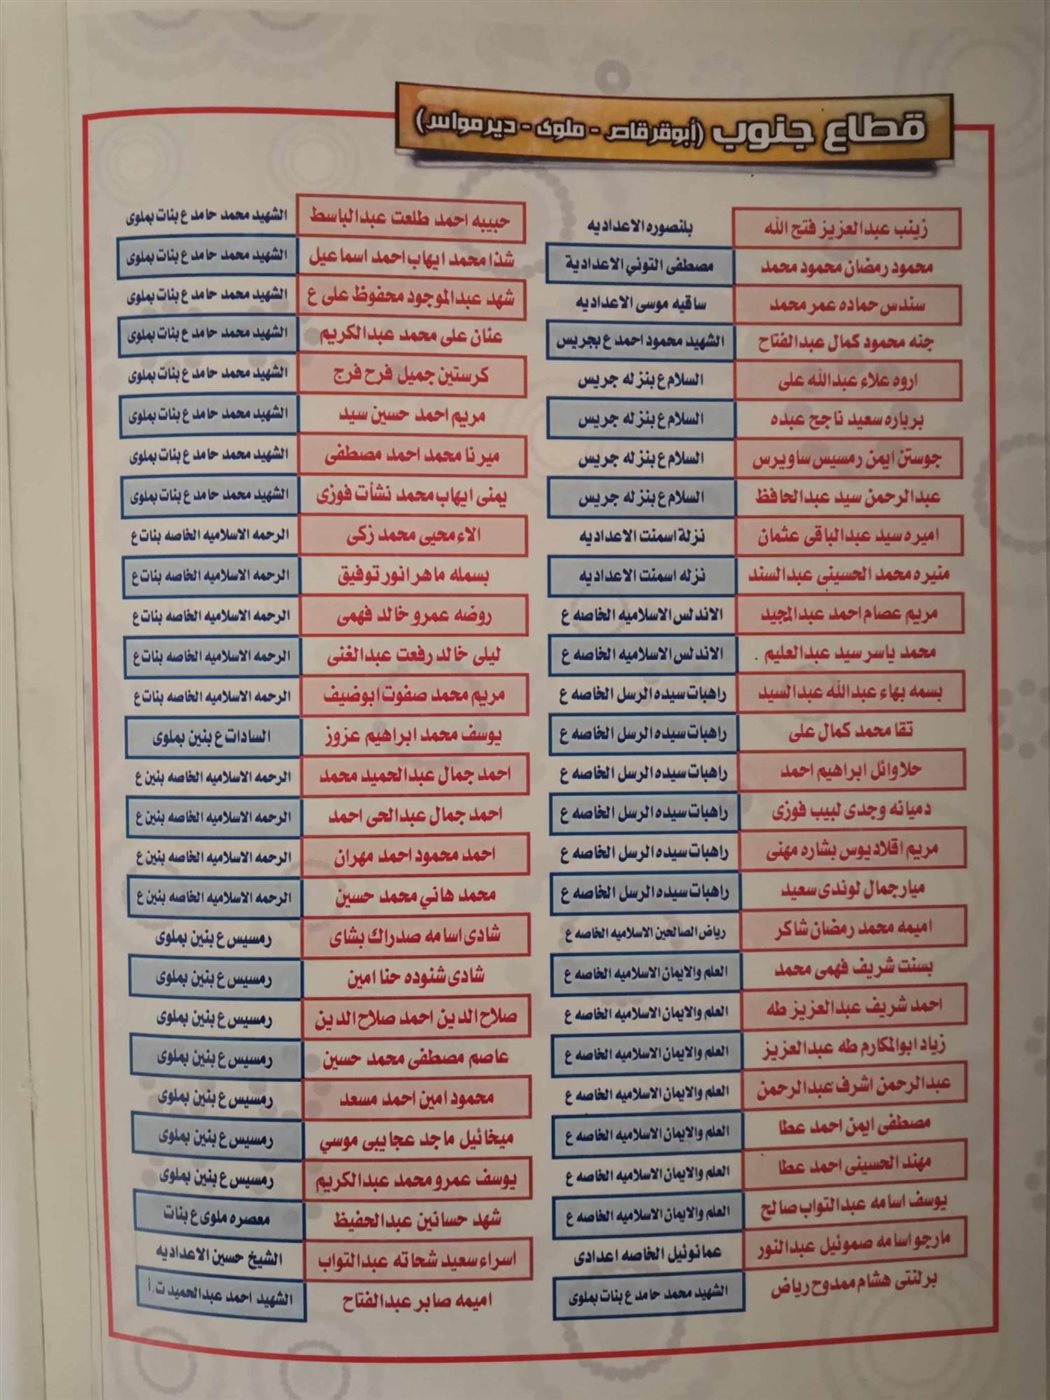 قطاع جنوب (أبوقرقاص - ملوى - ديرمواس)
زينب عبدالعزيز فتح الله بلنصوره الاعداديه
محمود رمضان محمود محمد مصطفى التوني الاعدادية
سندس حماده عمر محمد ساقيه موسى الاعداديه
جنه محمود كمال عبدالفتاح الشهيد محمود احمد ع بجريس
اروه علاء عبدالله على السلام ع بنزله جريس
برباره سعيد ناجح عبده السلام ع بنزله جريس
جوستن ايمن رمسيس ساويرس السلام ع بنزله جريس
عبدالرحمن سيد عبدالحافظ السلام ع بنزله جريس
اميره سيد عبدالباقى عثمان نزلة اسمنت الاعداديه
منيره محمد الحسينى عبدالسند نزله اسمنت الاعداديه
مريم عصام احمد عبدالمجيد الاندلس الاسلاميه الخاصه ع
محمد ياسر سيد عبدالعليم . الاندلس الاسلاميه الخاصه ع
بسمه بهاء عبدالله عبدالسيد راهبات سيده الرسل الخاصه ع
تقا محمد كمال على راهبات سيده الرسل الخاصه ع
حلا وائل ابراهيم احمد راهبات سيده الرسل الخاصه ع
دميانه وجدى لبيب فوزى راهبات سيده الرسل الخاصه ع
مريم اقلاديوس بشاره مهنى راهبات سيده الرسل الخاصه ع
ميار جمال لوندى سعيد راهبات سيده الرسل الخاصه ع
اميمه محمد رمضان شاكر رياض الصالحين الاسلاميه الخاصه ع
بسنت شريف فهمى محمد العلم والايمان الاسلاميه الخاصه ع
احمد شريف عبدالعزيز طه العلم والايمان الاسلاميه الخاصه ع
زياد ابوالمكارم طه عبدالعزيز العلم والايمان الاسلاميه الخاصه ع
عبدالرحمن اشرف عبدالرحمن العلم والايمان الاسلاميه الخاصه ع
مصطفى ايمن احمد عطا العلم والايمان الاسلاميه الخاصه ع
مهند الحسينى احمد عطا العلم والايمان الاسلاميه الخاصه ع
يوسف اسامه عبدالتواب صالح العلم والايمان الاسلاميه الخاصه ع
مارجو اسامه صموئيل عبدالنور عمانوئيل الخاصه اعدادى
برلنتى هشام ممدوح رياض الشهيد محمد حامد ع بنات بملوى
حبيبه احمد طلعت عبدالباسط الشهيد محمد حامد ع بنات بملوى
شذا محمد ايهاب احمد اسماعيل الشهيد محمد حامد ع بنات بملوى
شهد عبدالموجود محفوظ على ع الشهيد محمد حامد ع بنات بملوى
عنان على محمد عبدالكريم الشهيد محمد حامد ع بنات بملوى
كرستين جميل فرح فرج الشهيد محمد حامد ع بنات بملوى
مريم احمد حسين سيد الشهيد محمد حامد ع بنات بملوى
ميرنا محمد احمد مصطفى الشهيد محمد حامد ع بنات بملوى
يمنى ايهاب محمد نشأت فوزى الشهيد محمد حامد ع بنات بملوى
الاء محيى محمد زكى الرحمه الاسلاميه الخاصه بنات ع
بسمله ماهر انور توفيق الرحمه الاسلاميه الخاصه بنات ع
روضه عمرو خالد فهمى الرحمه الاسلاميه الخاصه بنات ع
ليلى خالد رفعت عبدالغنى الرحمه الاسلاميه الخاصه بنات ع
مريم محمد صفوت ابوضيف الرحمه الاسلاميه الخاصه بنات ع
يوسف محمد ابراهيم عزوز السادات ع بنين بملوى
احمد جمال عبدالحميد محمد الرحمه الاسلاميه الخاصه بنين ع
احمد جمال عبدالحى احمد الرحمه الاسلاميه الخاصه بنين ع
احمد محمود احمد مهران الرحمه الاسلاميه الخاصه بنين ع
محمد هاني محمد حسين الرحمه الاسلاميه الخاصه بنين ع
شادى اسامه صدراك بشاى رمسيس ع بنين بملوى
شادى شنوده حنا امين رمسيس ع بنين بملوى
صلاح الدين احمد صلاح الدين رمسيس ع بنين بملوى
عاصم مصطفى محمد حسين رمسيس ع بنين بملوى
محمود امين احمد مسعد رمسيس ع بنين بملوى
ميخائيل ماجد عجايبى موسي رمسيس ع بنين بملوى
يوسف عمرو محمد عبدالكريم رمسيس ع بنين بملوى
شهد حسانين عبدالحفيظ معصره ملوى ع بنات
اسراء سعيد شحاته عبدالتواب الشيخ حسين الاعداديه
اميمه صابر عبدالفتاح الشهيد احمد عبدالحميد ت.أ